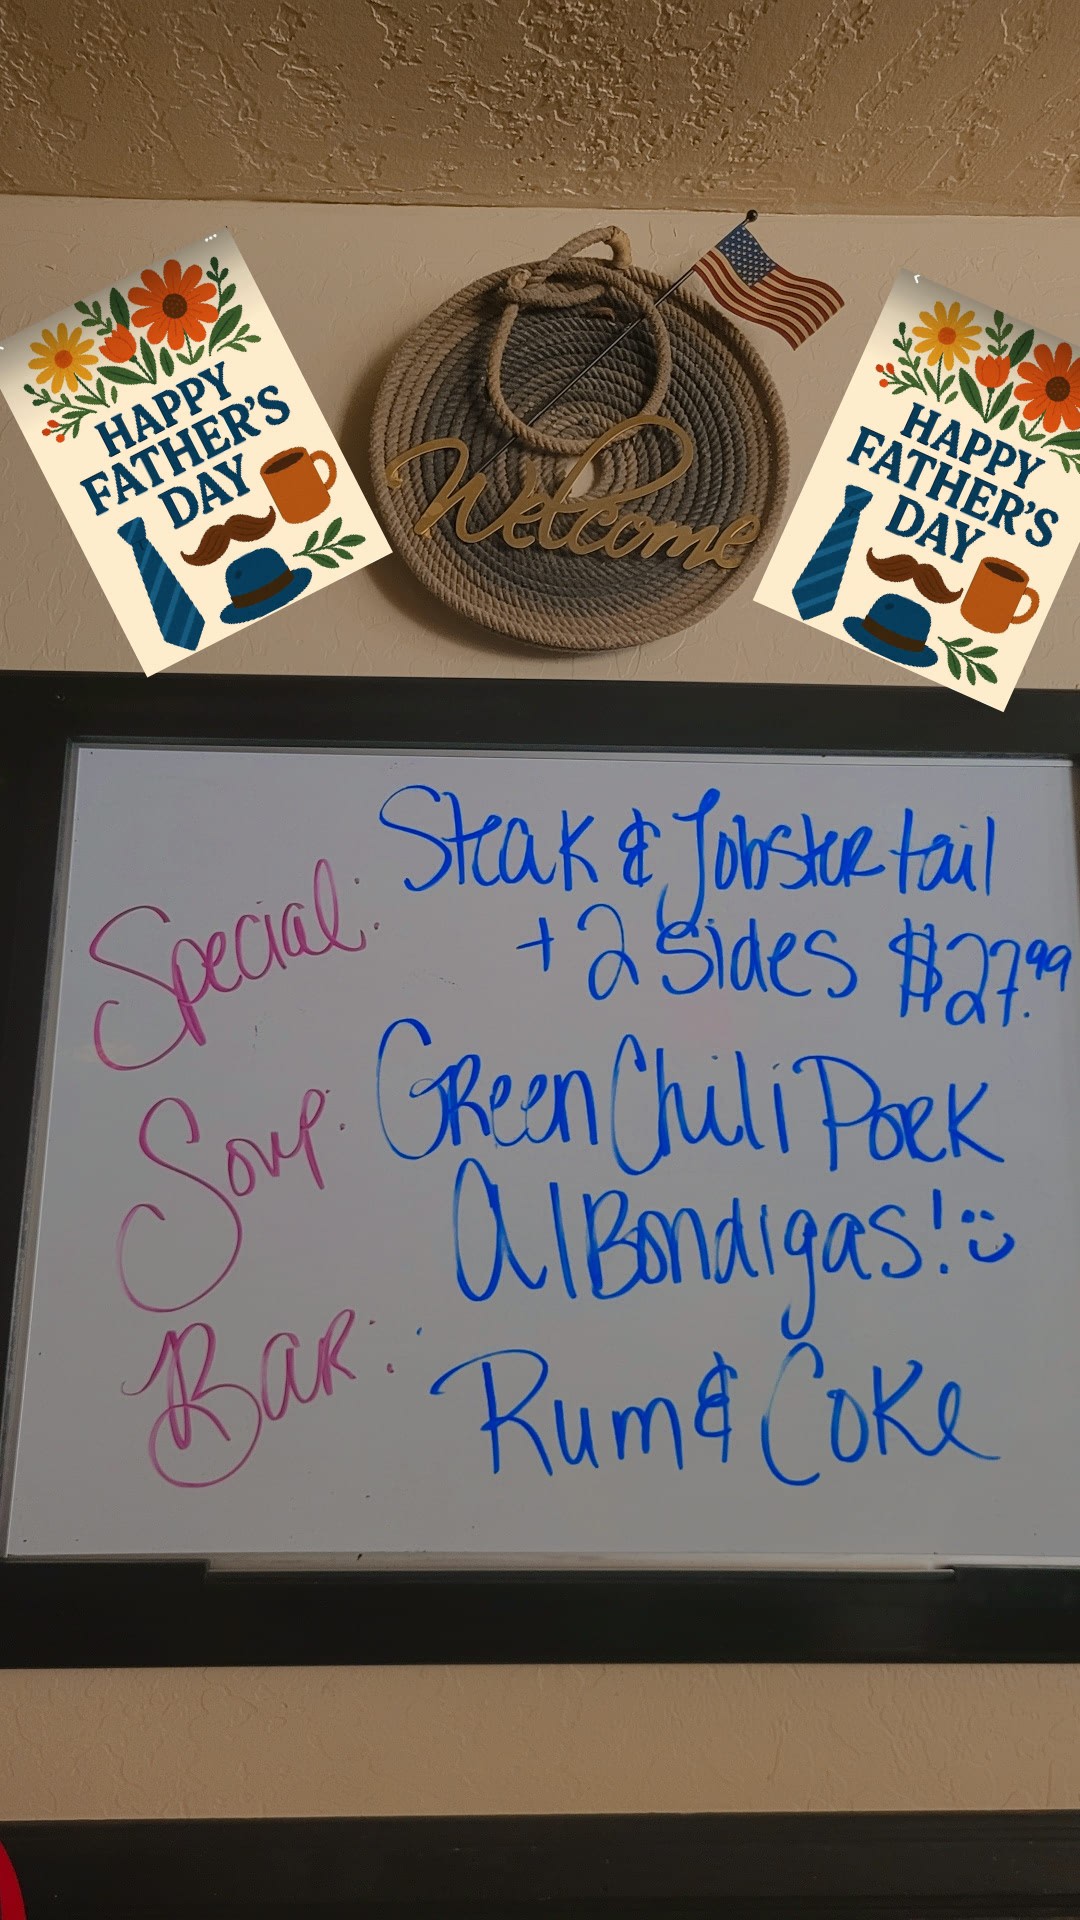 HAPPY
FATHER'S
DAY
Welcome
HAPPY
FATHER'S
DAY
Special: Steak & Lobster tail
+ 2 sides $27.99
Soup: Green Chili Pork
AlBondigas! :)
Bar: Rum & Coke